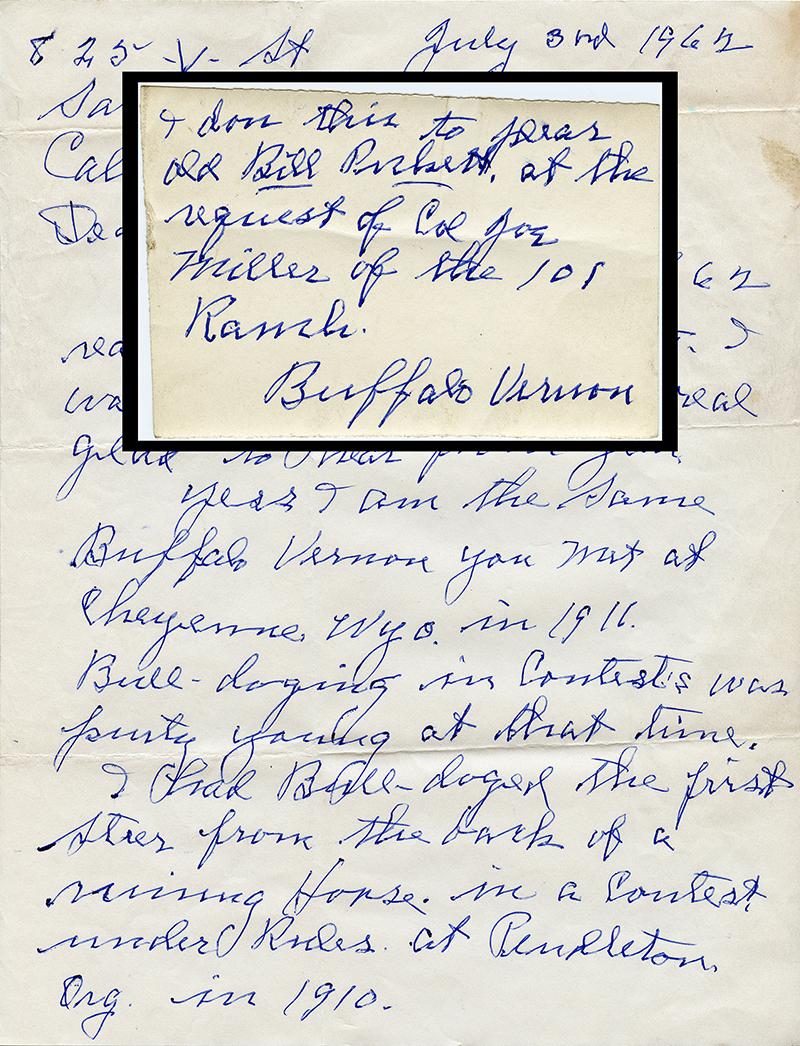 825 -V- St July 3rd 1962
Sa
Cal
Dea
62
rea I
wa real
glad to hear from you
I don this to pleas
old Bill Pickett, at the
request of Col Joe
Miller of the 101
Ranch.
Buffalo Vernon
yeas I am the same
Buffalo Vernon you met at
Cheyenne. Wyo. in 1911.
Bull-doging in Contests was
purty young at that time.
I Had Bull-doged the first
Steer from the back of a
running Horse. in a Contest,
under Rules. at Pendleton,
Org. in 1910.